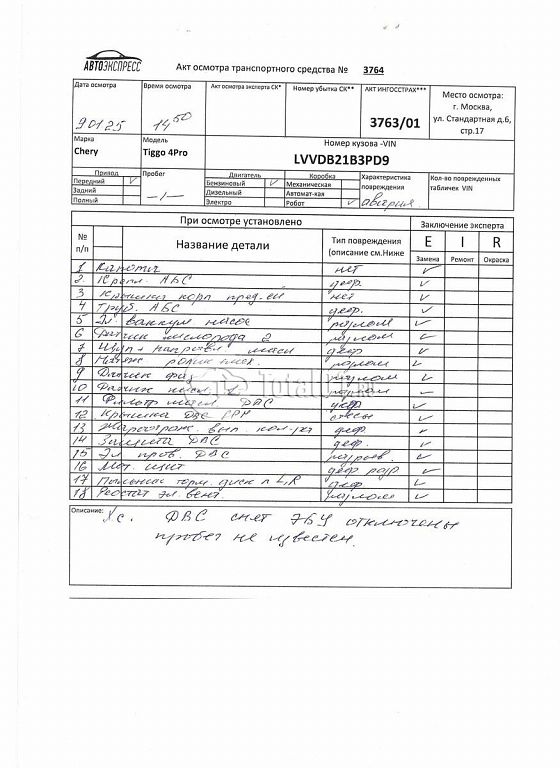 АВТОЭКСПРЕСС
Акт осмотра транспортного средства № 3764
Дата осмотра Время осмотра Акт осмотра эксперта СК* Номер убытка СК** АКТ ИНГОССТРАХ*** Место осмотра:
г. Москва,
ул. Стандартная д.6,
стр.17
90125 14 50 3763/01
Марка Модель Номер кузова -VIN
Chery Tiggo 4Pro LVVDB21B3PD9
Привод Пробег Двигатель Коробка Характеристика повреждения Кол-во поврежденных табличек VIN
Передний V Бензиновый V Механическая
Задний Дизельный Автомат-кая
Полный Электро Робот V авария
При осмотре установлено Заключение эксперта
№ п/п Название детали Тип повреждения (описание см.Ниже E I R
Замена Ремонт Окраска
1 Капота нет
2. Крепл. АБС деф.
3 Крышки корп пред-ей нет
4 Труб. АБС деф.
5 Эл ваккум насос разлом
6 Датчик кислорода 2 разлом
7 Щуп + направл масл деф
8 Натяж ролик разлом
9 Датчик фаз разлом
10 Датчик кисл. 1 разлом
11 Фильтр масл ДВС деф
12 Крышка ДВС ГРМ
13 выпл. кол-ра деф
14 Защита ДВС деф.
15 Эл пров. ДВС разрыв.
16 Мот. щит деф разр
17 торм. диск п L,R деф
18 Реостат эл. вент. разлом
Описание: ДВС снят ЭБУ отключены
пробег не известен.
Total